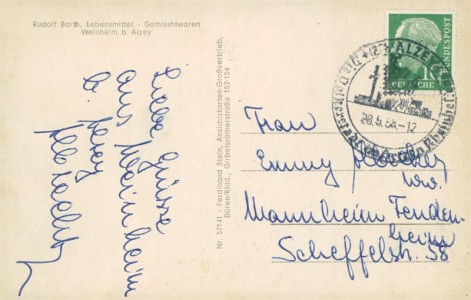 Rudolf Barth, Lebensmittel - Gemischtwaren
Weinheim b. Alzey
Liebe Grüsse
aus Wainheim
b.
Nr. 57141 - Ferdinand Stein, Ansichtskarten-Großvertrieb,
Düren/Rhld., Girbelsratherstraße 152-154
ALZEY
20.5.56.-12
10
DEUTSCHE
BUNDESPOST
Frau
Emmy
Mannheim Feuden-
heim
Scheffelstr. 58